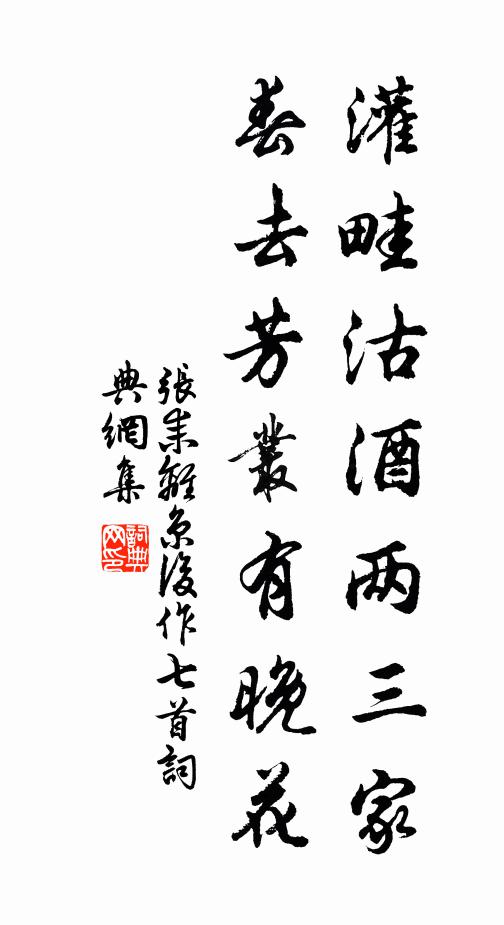 灌畦沽酒两三家
春去芳叢有晚花
張耒離京後作七首詞
典網集
詞典
网印